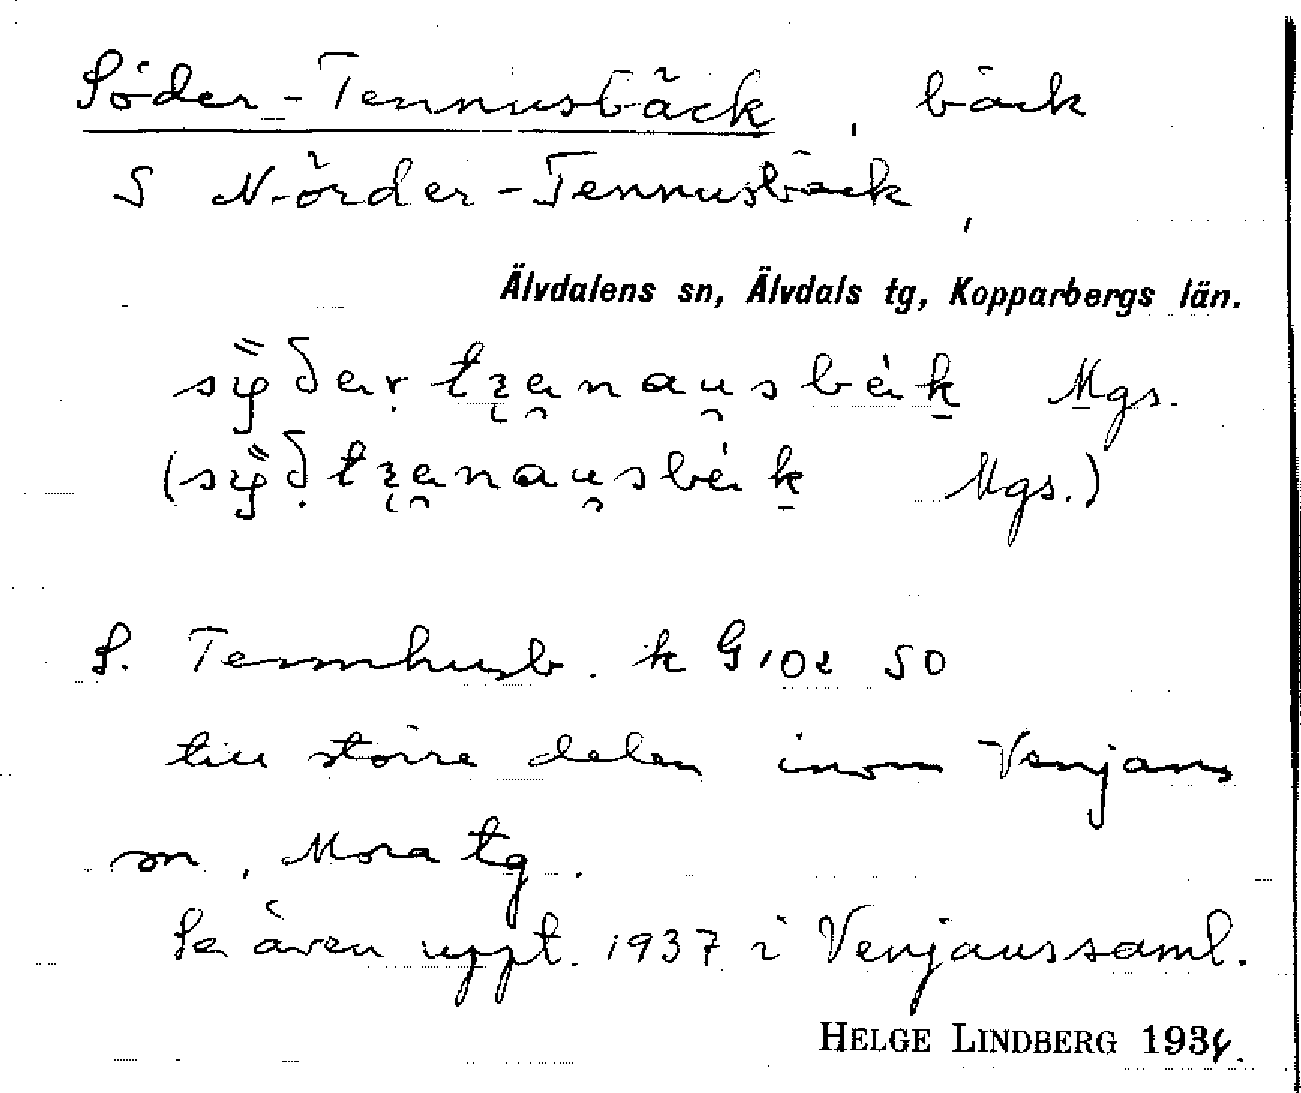 Söder-Tennusbäck, bäck
S Nörder-Tennusbäck,
Älvdalens sn, Älvdals tg, Kopparbergs län.
Mgs.
Mgs.)
S. Tennhusb. k G 102 SO
till större delen inom Venjans
sn, Mora tg.
Se även uppt. 1937 i Venjanssaml.
HELGE LINDBERG 1934.